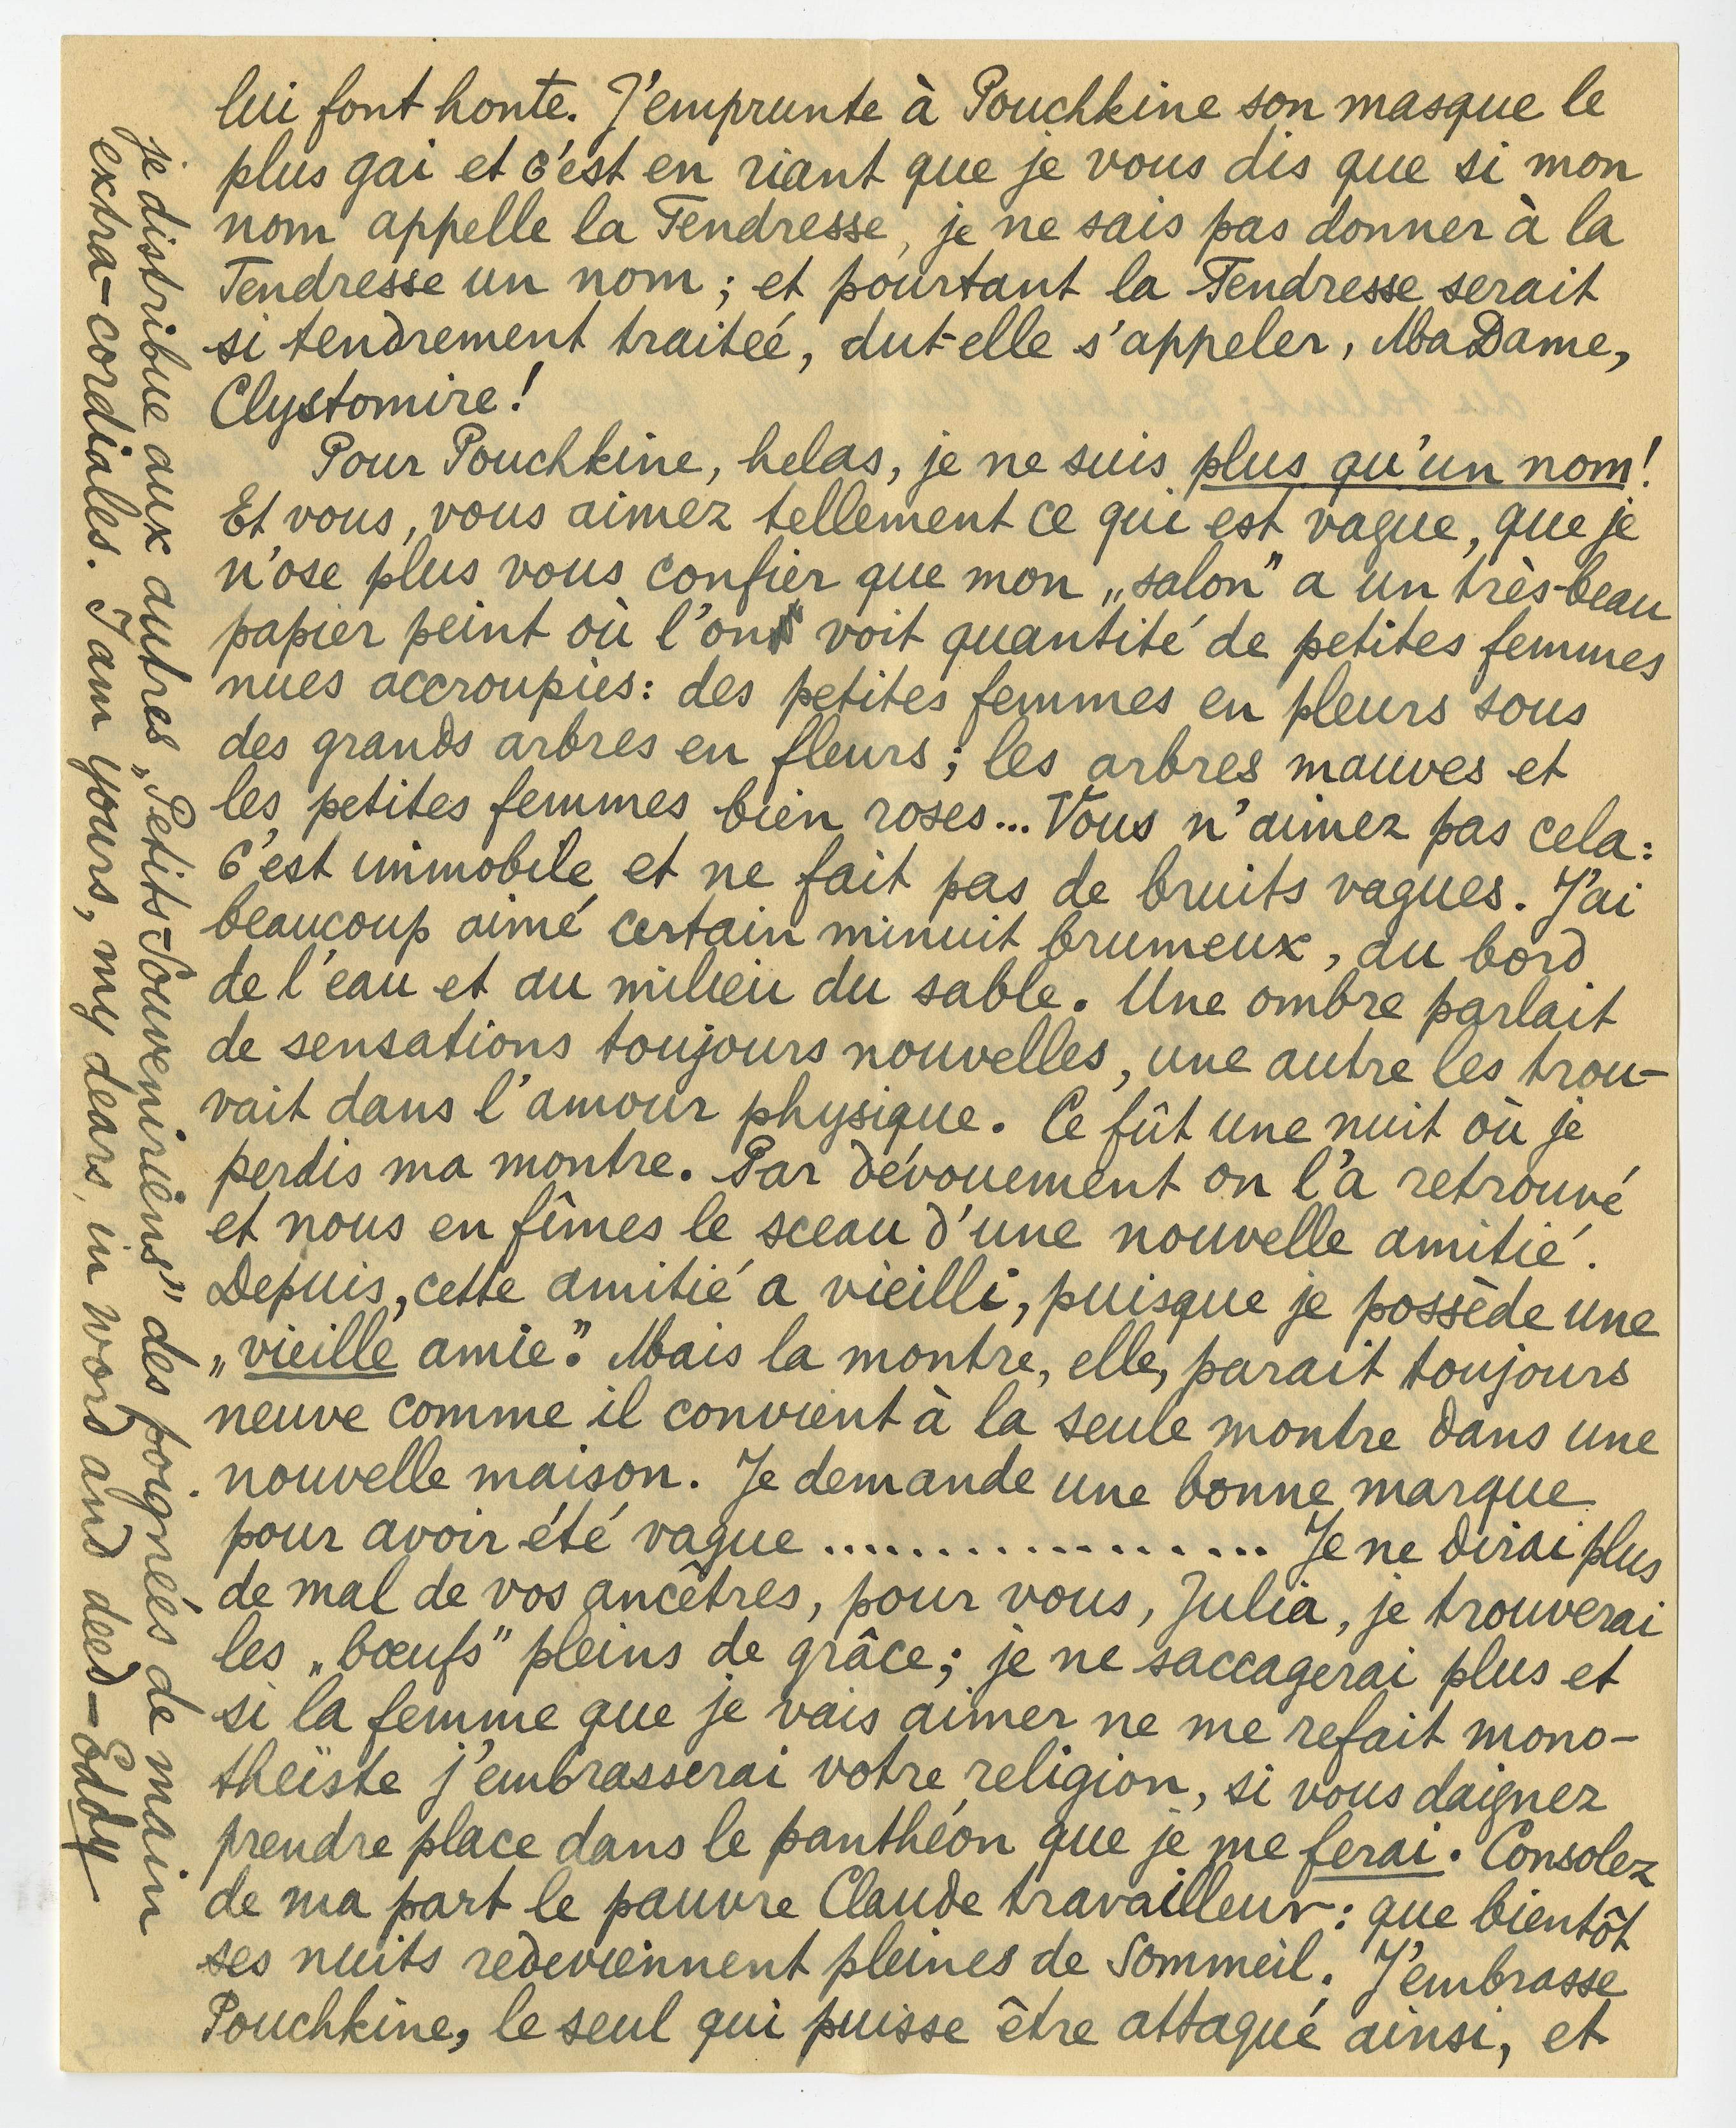 lui font honte. J'emprunte à Pouchkine son masque le
plus gai et c'est en riant que je vous dis que si mon
nom appelle la Tendresse, je ne sais pas donner à la
Tendresse un nom ; et pourtant la Tendresse serait
si tendrement traiteé, dut-elle s'appeler, MaDame,
Clystomire !
Pour Pouchkine, helas, je ne suis plus qu'un nom !
Et vous, vous aimez tellement ce qui est vague, que je
n'ose plus vous confier que mon „salon" a un très-beau
papier peint où l'on voit quantité de petites femmes
nues accroupies : des petites femmes en pleurs sous
des grands arbres en fleurs ; les arbres mauves et
les petites femmes bien roses... Vous n'aimez pas cela :
C'est immobile et ne fait pas de bruits vagues. J'ai
beaucoup aimé certain minuit brumeux, au bord
de l'eau et au milieu du sable. Une ombre parlait
de sensations toujours nouvelles, une autre les trou-
vait dans l'amour physique. Ce fût une nuit où je
perdis ma montre. Par dévouement on l'a retrouvé
et nous en fîmes le sceau d'une nouvelle amitié.
Depuis, cette amitié a vieilli, puisque je possède une
„vieille amie". Mais la montre, elle, parait toujours
neuve comme il convient à la seule montre dans une
nouvelle maison. Je demande une bonne marque
pour avoir été vague .................. Je ne dirai plus
de mal de vos ancêtres, pour vous, Julia, je trouverai
les „bœufs" pleins de grâce ; je ne saccagerai plus et
si la femme que je vais aimer ne me refait mono-
théïste j'embrasserai votre religion, si vous daignez
prendre place dans le panthéon que je me ferai. Consolez
de ma part le pauvre Claude travailleur : que bientôt
ses nuits redeviennent pleines de sommeil. J'embrasse
Pouchkine, le seul qui puisse être attaqué ainsi, et
je distribue aux autres „Petits-Souveniriens" des poignées de main
extra-cordiales. I am yours, my dears, in word and deed – Eddy